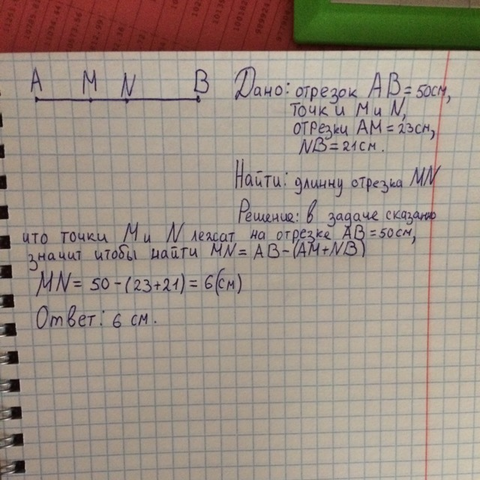 A M N B
Дано: отрезок AB = 50см,
точки M и N,
отрезки AM = 23см,
NB = 21см.
Найти: длинну отрезка MN
Решение: в задаче сказано
что точки M и N лежат на отрезке AB = 50см,
значит чтобы найти MN = AB - (AM + NB)
MN = 50 - (23 + 21) = 6(см)
Ответ: 6 см.